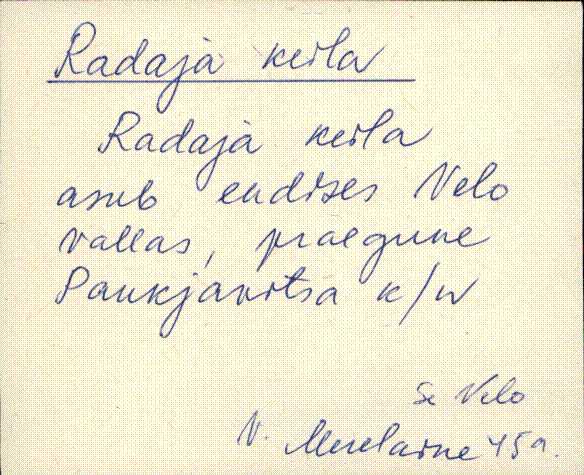 Radaja keila
Radaja keila
asub endises Velo
vallas, praegune
Pankjavitsa k/n
Se Velo
V. Merelaine 45 a.